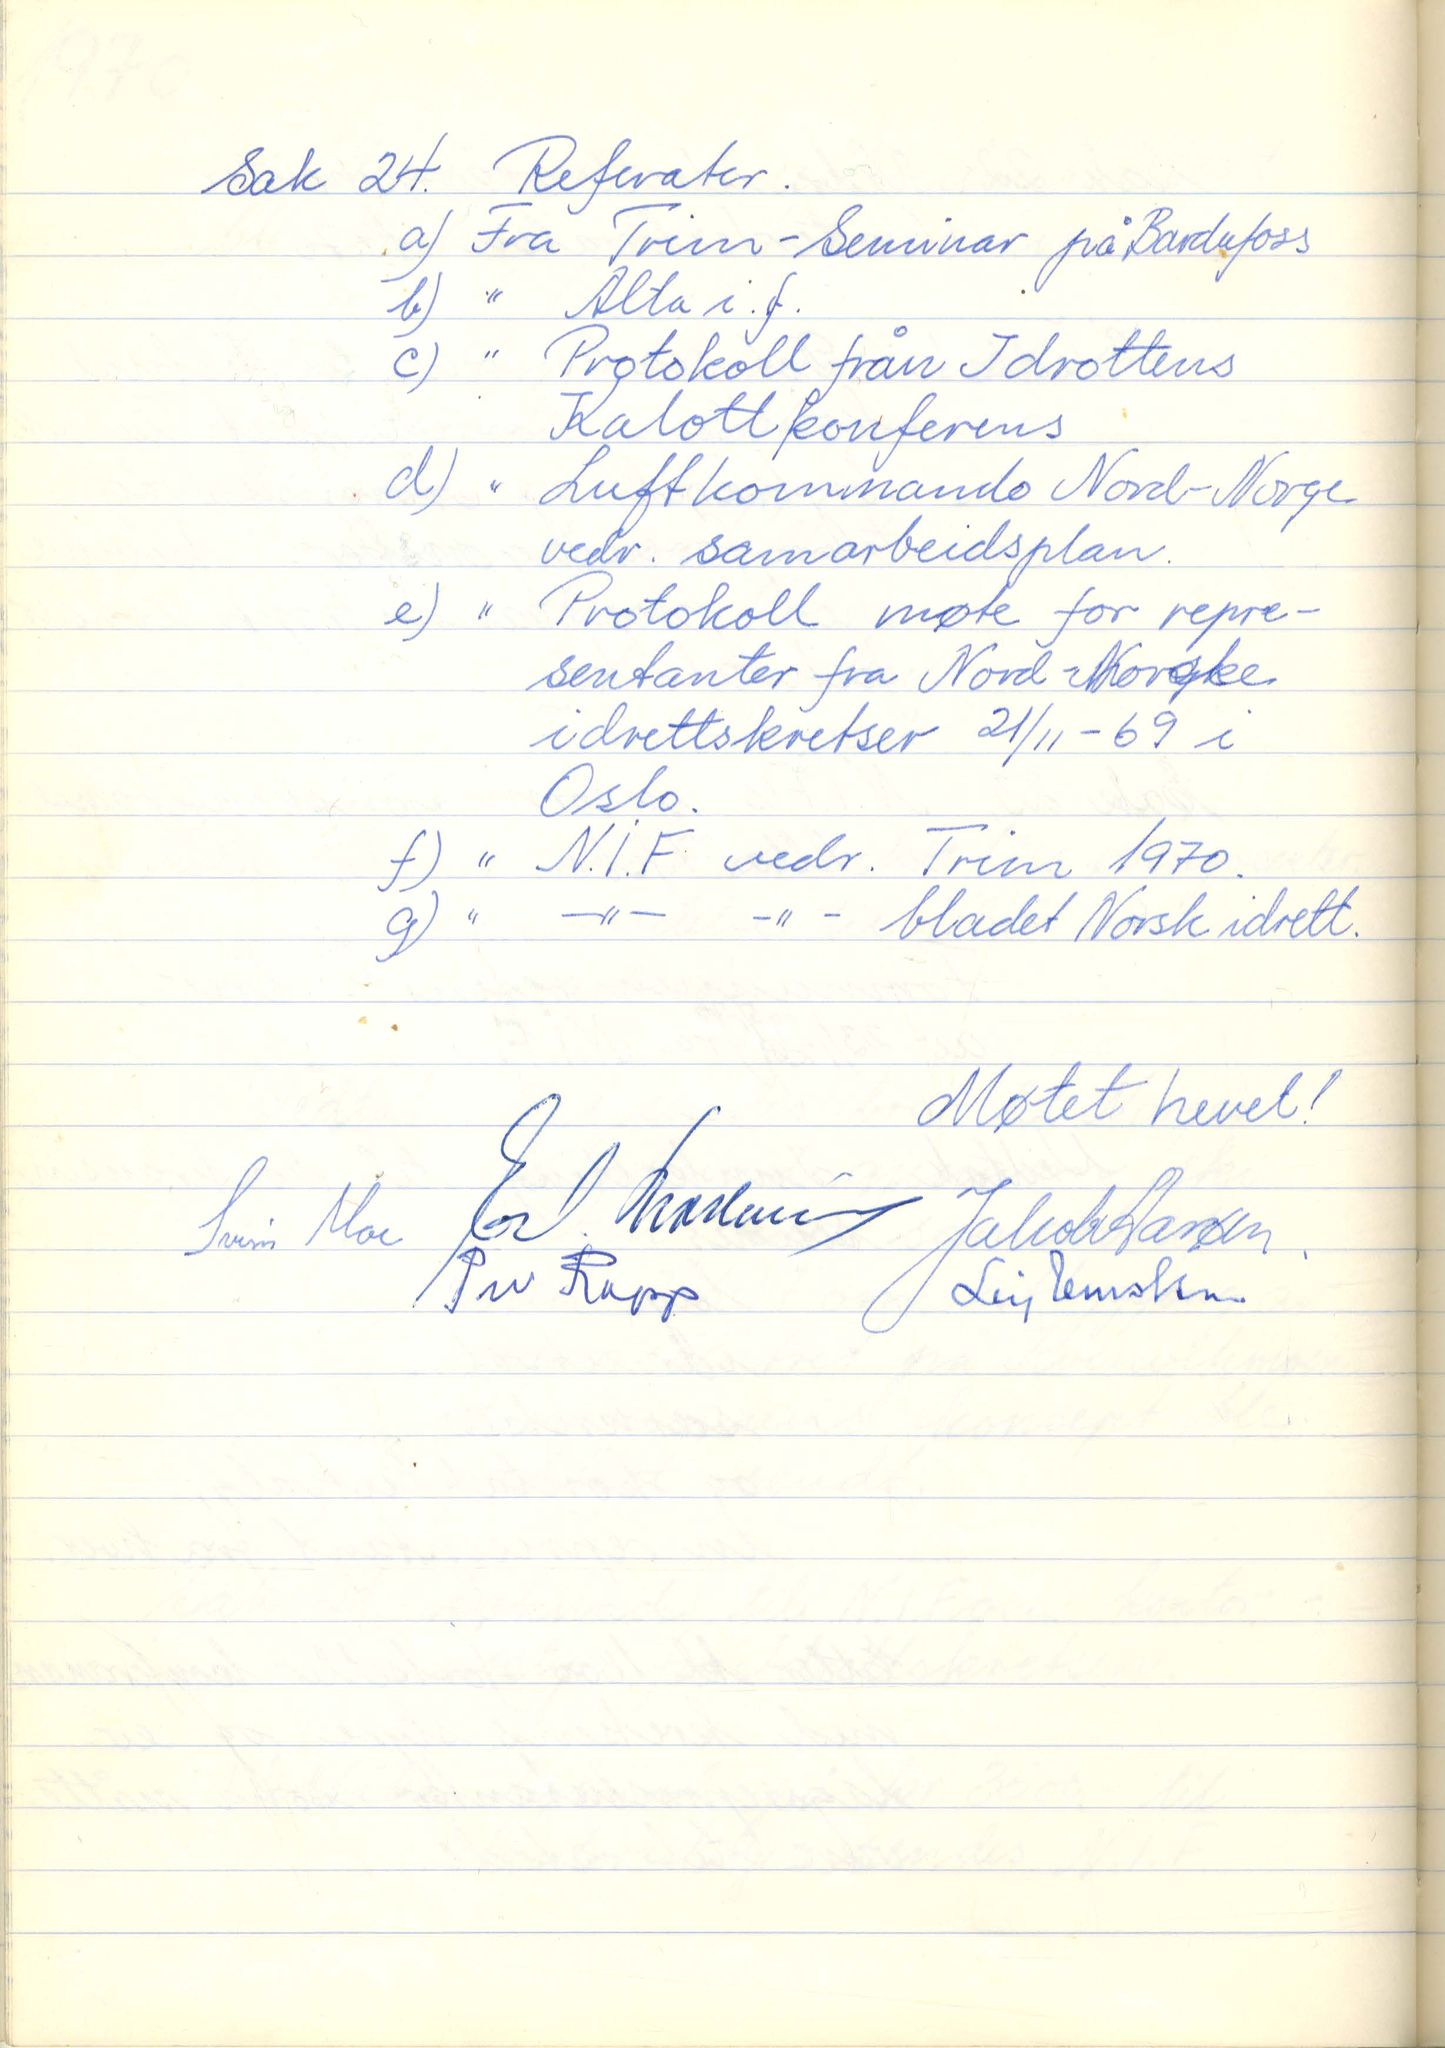 Sak 24. Referater.
a) Fra Trim-Seminar på Bardufoss
b) " Alta i.f.
c) " Protokoll från Idrottens
Kalottkonferens
d) " Luftkommando Nord-Norge
vedr. samarbeidsplan.
e) " Protokoll møte for repre-
sentanter fra Nord-Norske
idrettskretser 21/11-69 i
Oslo.
f) " N.I.F. vedr. Trim 1970.
g) " —"— -"- bladet Norsk idrett.
Møtet hevet!
Svein Moe Jakob Hansen.
Per Rapp Leif